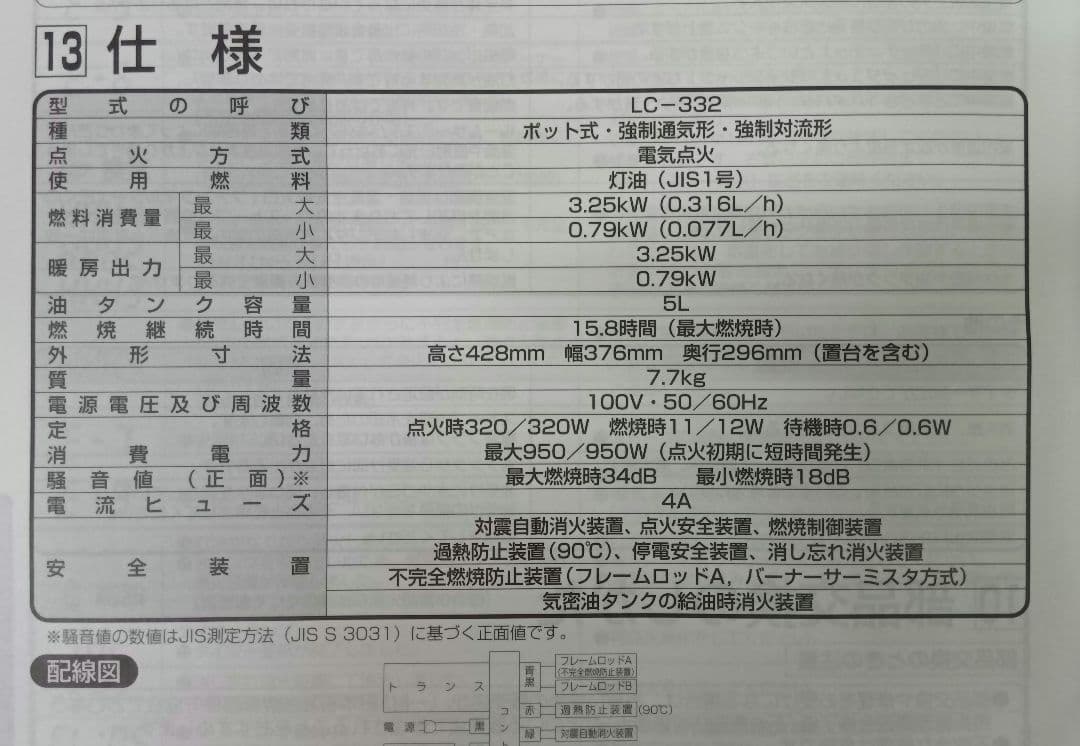 13 仕様
型式の呼び LC－332
種類 ポット式・強制通気形・強制対流形
点火方式 電気点火
使用燃料 灯油（JIS1号）
燃料消費量 最大 3.25kW（0.316L／h）
最小 0.79kW（0.077L／h）
暖房出力 最大 3.25kW
最小 0.79kW
油タンク容量 5L
燃焼継続時間 15.8時間（最大燃焼時）
外形寸法 高さ428mm 幅376mm 奥行296mm（置台を含む）
質量 7.7kg
電源電圧及び周波数 100V・50／60Hz
定格 点火時320／320W 燃焼時11／12W 待機時0.6／0.6W
消費電力 最大950／950W（点火初期に短時間発生）
騒音値（正面）※ 最大燃焼時34dB 最小燃焼時18dB
電流ヒューズ 4A
安全装置 対震自動消火装置、点火安全装置、燃焼制御装置
過熱防止装置（90℃）、停電安全装置、消し忘れ消火装置
不完全燃焼防止装置（フレームロッドA，バーナーサーミスタ方式）
気密油タンクの給油時消火装置
※騒音値の数値はJIS測定方法（JIS S 3031）に基づく正面値です。
配線図
フレームロッドA
（不完全燃焼防止装置）
青
黒
フレームロッドB
トランス
コント
赤 過熱防止装置（90℃）
電源 黒
緑 対震自動消火装置